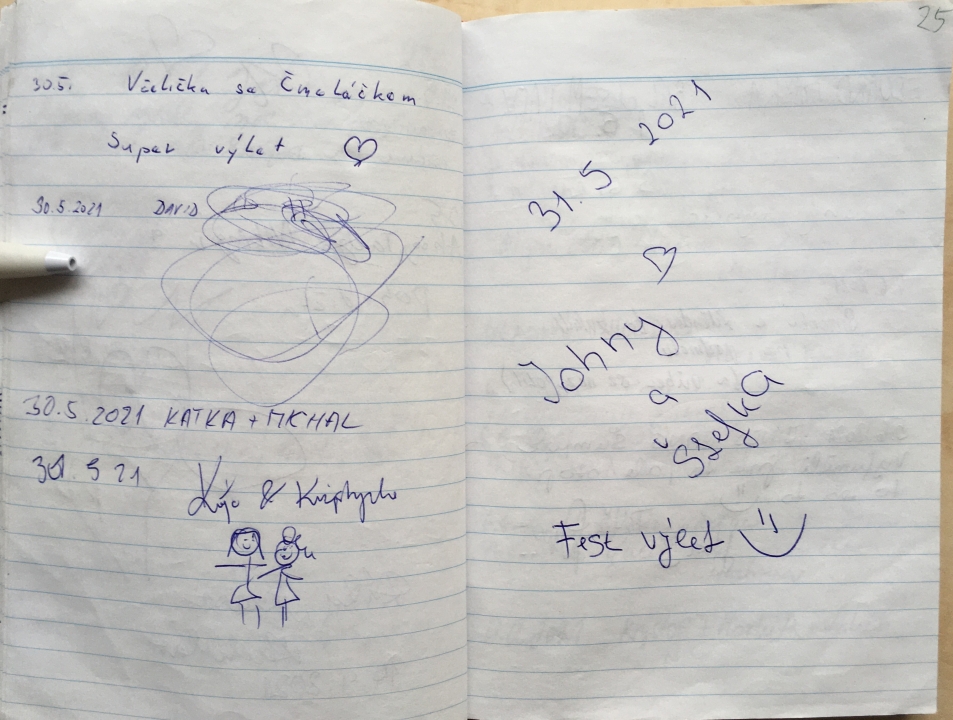 30.5. Včelička sa Čmeláčkom
Super výlet
30.5.2021 DAVID
30.5.2021 KATKA + MICHAL
5 21
&
25
31.5 2021
Johny
a
Fest výlet